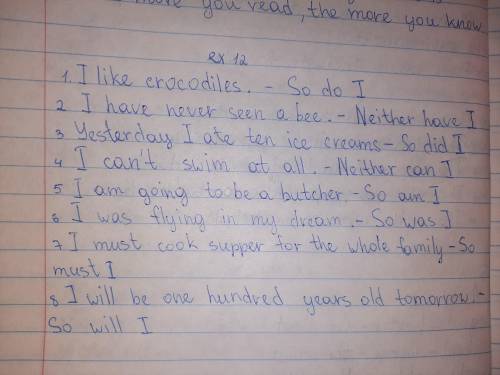 more you read, the more you know
ex 12
1. I like crocodiles. - So do I
2 I have never seen a bee. - Neither have I
3 Yesterday I ate ten ice creams - So did I
4 I can't swim at all. - Neither can I
5 I am going to be a butcher. - So am I
6 I was flying in my dream. - So was I
7 I must cook supper for the whole family - So
must I
8 I will be one hundred years old tomorrow. -
So will I